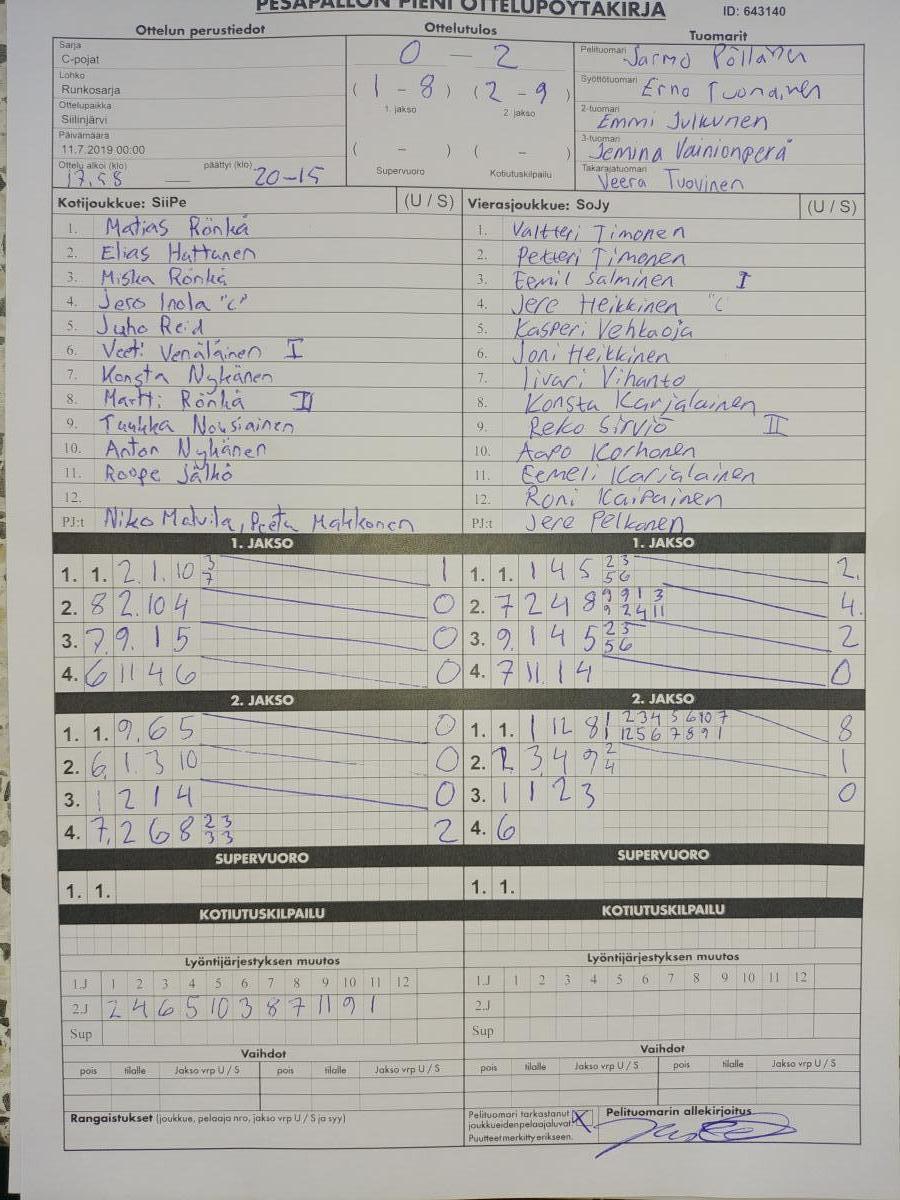 PESÄPALLON PIENI OTTELUPÖYTÄKIRJA
ID: 643140
Ottelun perustiedot
Ottelutulos
Tuomarit
Sarja
C-pojat
Lohko
Runkosarja
Ottelupaikka
Siilinjärvi
Päivämäärä
11.7.2019 00:00
Ottelu alkoi (klo) päättyi (klo)
17.58 — 20-15
0 — 2
( 1 - 8 ) ( 2 - 9 )
1. jakso 2. jakso
( - ) ( - )
Supervuoro Kotiutuskilpailu
Pelituomari Jarmo Pöllänen
Syöttötuomari Erno Tuonainen
2-tuomari Emmi Julkunen
3-tuomari Jemina Vainionperä
Takarajatuomari Veera Tuovinen
Kotijoukkue: SiiPe (U / S)
1. Matias Rönkä
2. Elias Huttunen
3. Miska Rönkä
4. Jero Inola "C"
5. Juho Reid
6. Veeti Venäläinen I
7. Konsta Nykänen
8. Martti Rönkä II
9. Tuukka Nousiainen
10. Anton Nykänen
11. Roope Jälkö
12.
PJ:t Niko Matvila, Reeta Makkonen
Vierasjoukkue: SoJy (U / S)
1. Valtteri Timonen
2. Petteri Timonen
3. Eemil Salminen I
4. Jere Heikkinen "C"
5. Kasperi Vehkaoja
6. Joni Heikkinen
7. Iivari Vihanto
8. Konsta Karjalainen
9. Reko Sirviö II
10. Aapo Korhonen
11. Eemeli Karjalainen
12. Roni Kaipainen
PJ:t Jere Pelkonen
1. JAKSO
1. 1. 2. 1. 10 3 1
7
2. 8 2. 10 4 0
3. 7. 9. 1 5 0
4. 6 11 4 6 0
1. JAKSO
1. 1. 1 4 5 2 3 2.
5 6
2. 7 2 4 8 9 9 1 3 4.
9 2 4 11
3. 9. 1 4 5 2 3 2
5 6
4. 7 11. 1 4 0
2. JAKSO
1. 1. 9. 6 5 0
2. 6. 1. 3 10 0
3. 1 2 1 4 0
4. 7. 2 6 8 2 3 2
3 3
2. JAKSO
1. 1. 1 12 8 1 2 3 4 5 6 10 7 8
1 12 5 6 7 8 9 1
2. 2. 3. 4 9 2 1
4
3. 1 1 2 3 0
4. 6
SUPERVUORO
1. 1.
SUPERVUORO
1. 1.
KOTIUTUSKILPAILU
KOTIUTUSKILPAILU
Lyöntijärjestyksen muutos
1.J 1 2 3 4 5 6 7 8 9 10 11 12
2.J 2 4 6 5 10 3 8 7 11 9 1
Sup
Lyöntijärjestyksen muutos
1.J 1 2 3 4 5 6 7 8 9 10 11 12
2.J
Sup
Vaihdot
pois tilalle Jakso vrp U / S pois tilalle Jakso vrp U / S
Vaihdot
pois tilalle Jakso vrp U / S pois tilalle Jakso vrp U / S
Rangaistukset (joukkue, pelaaja nro, jakso vrp U / S ja syy)
Pelituomari tarkastanut
joukkueiden pelaajaluvat X
Puutteet merkitty erikseen.
Pelituomarin allekirjoitus